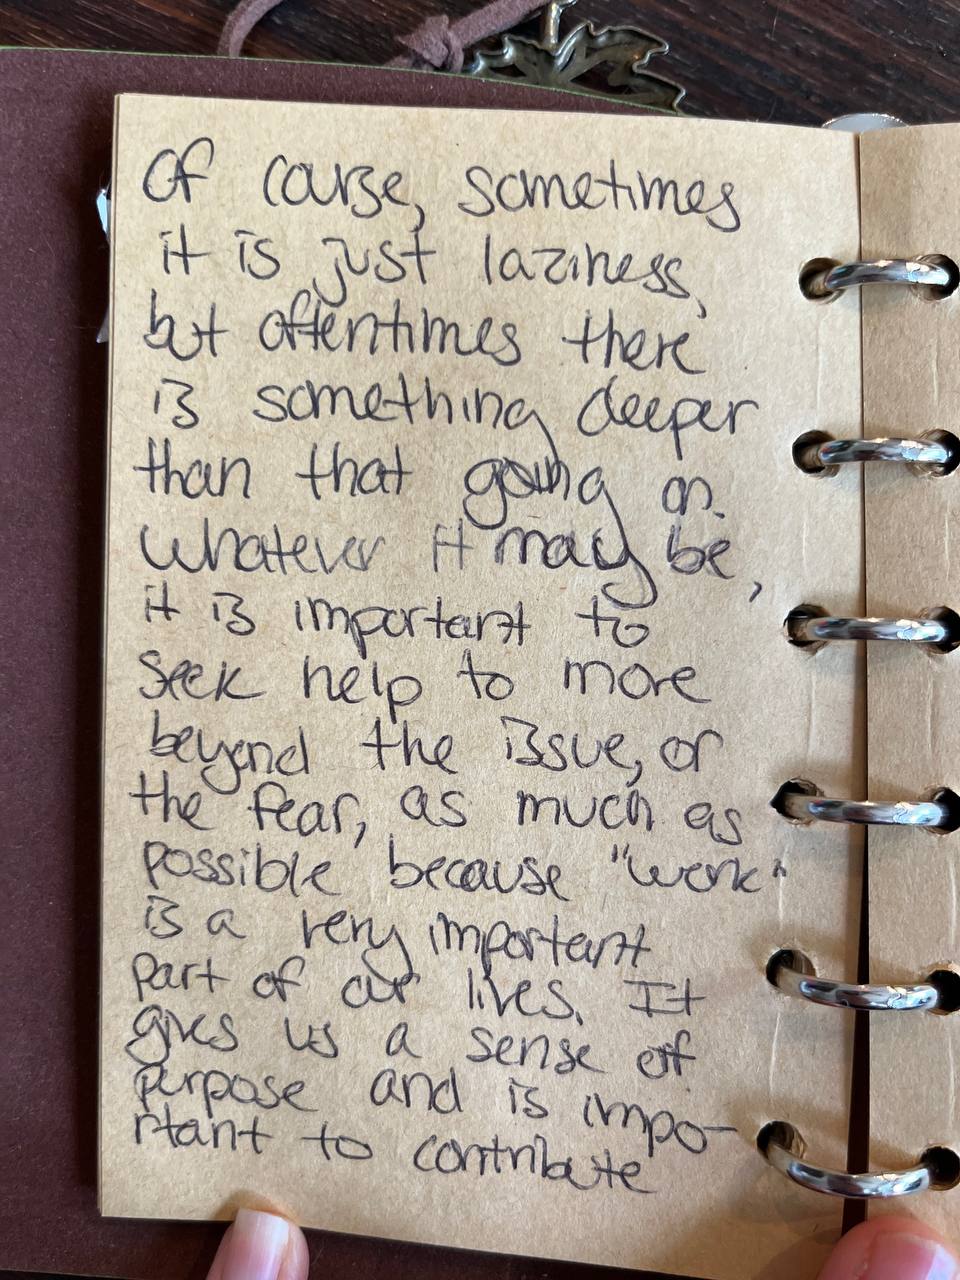 Of course, sometimes
it is just laziness,
but oftentimes there
is something deeper
than that going on.
Whatever it may be,
it is important to
seek help to more
beyond the issue, or
the fear, as much as
possible because "work"
is a very important
part of our lives. It
gives us a sense of
purpose and is impo-
rtant to contribute